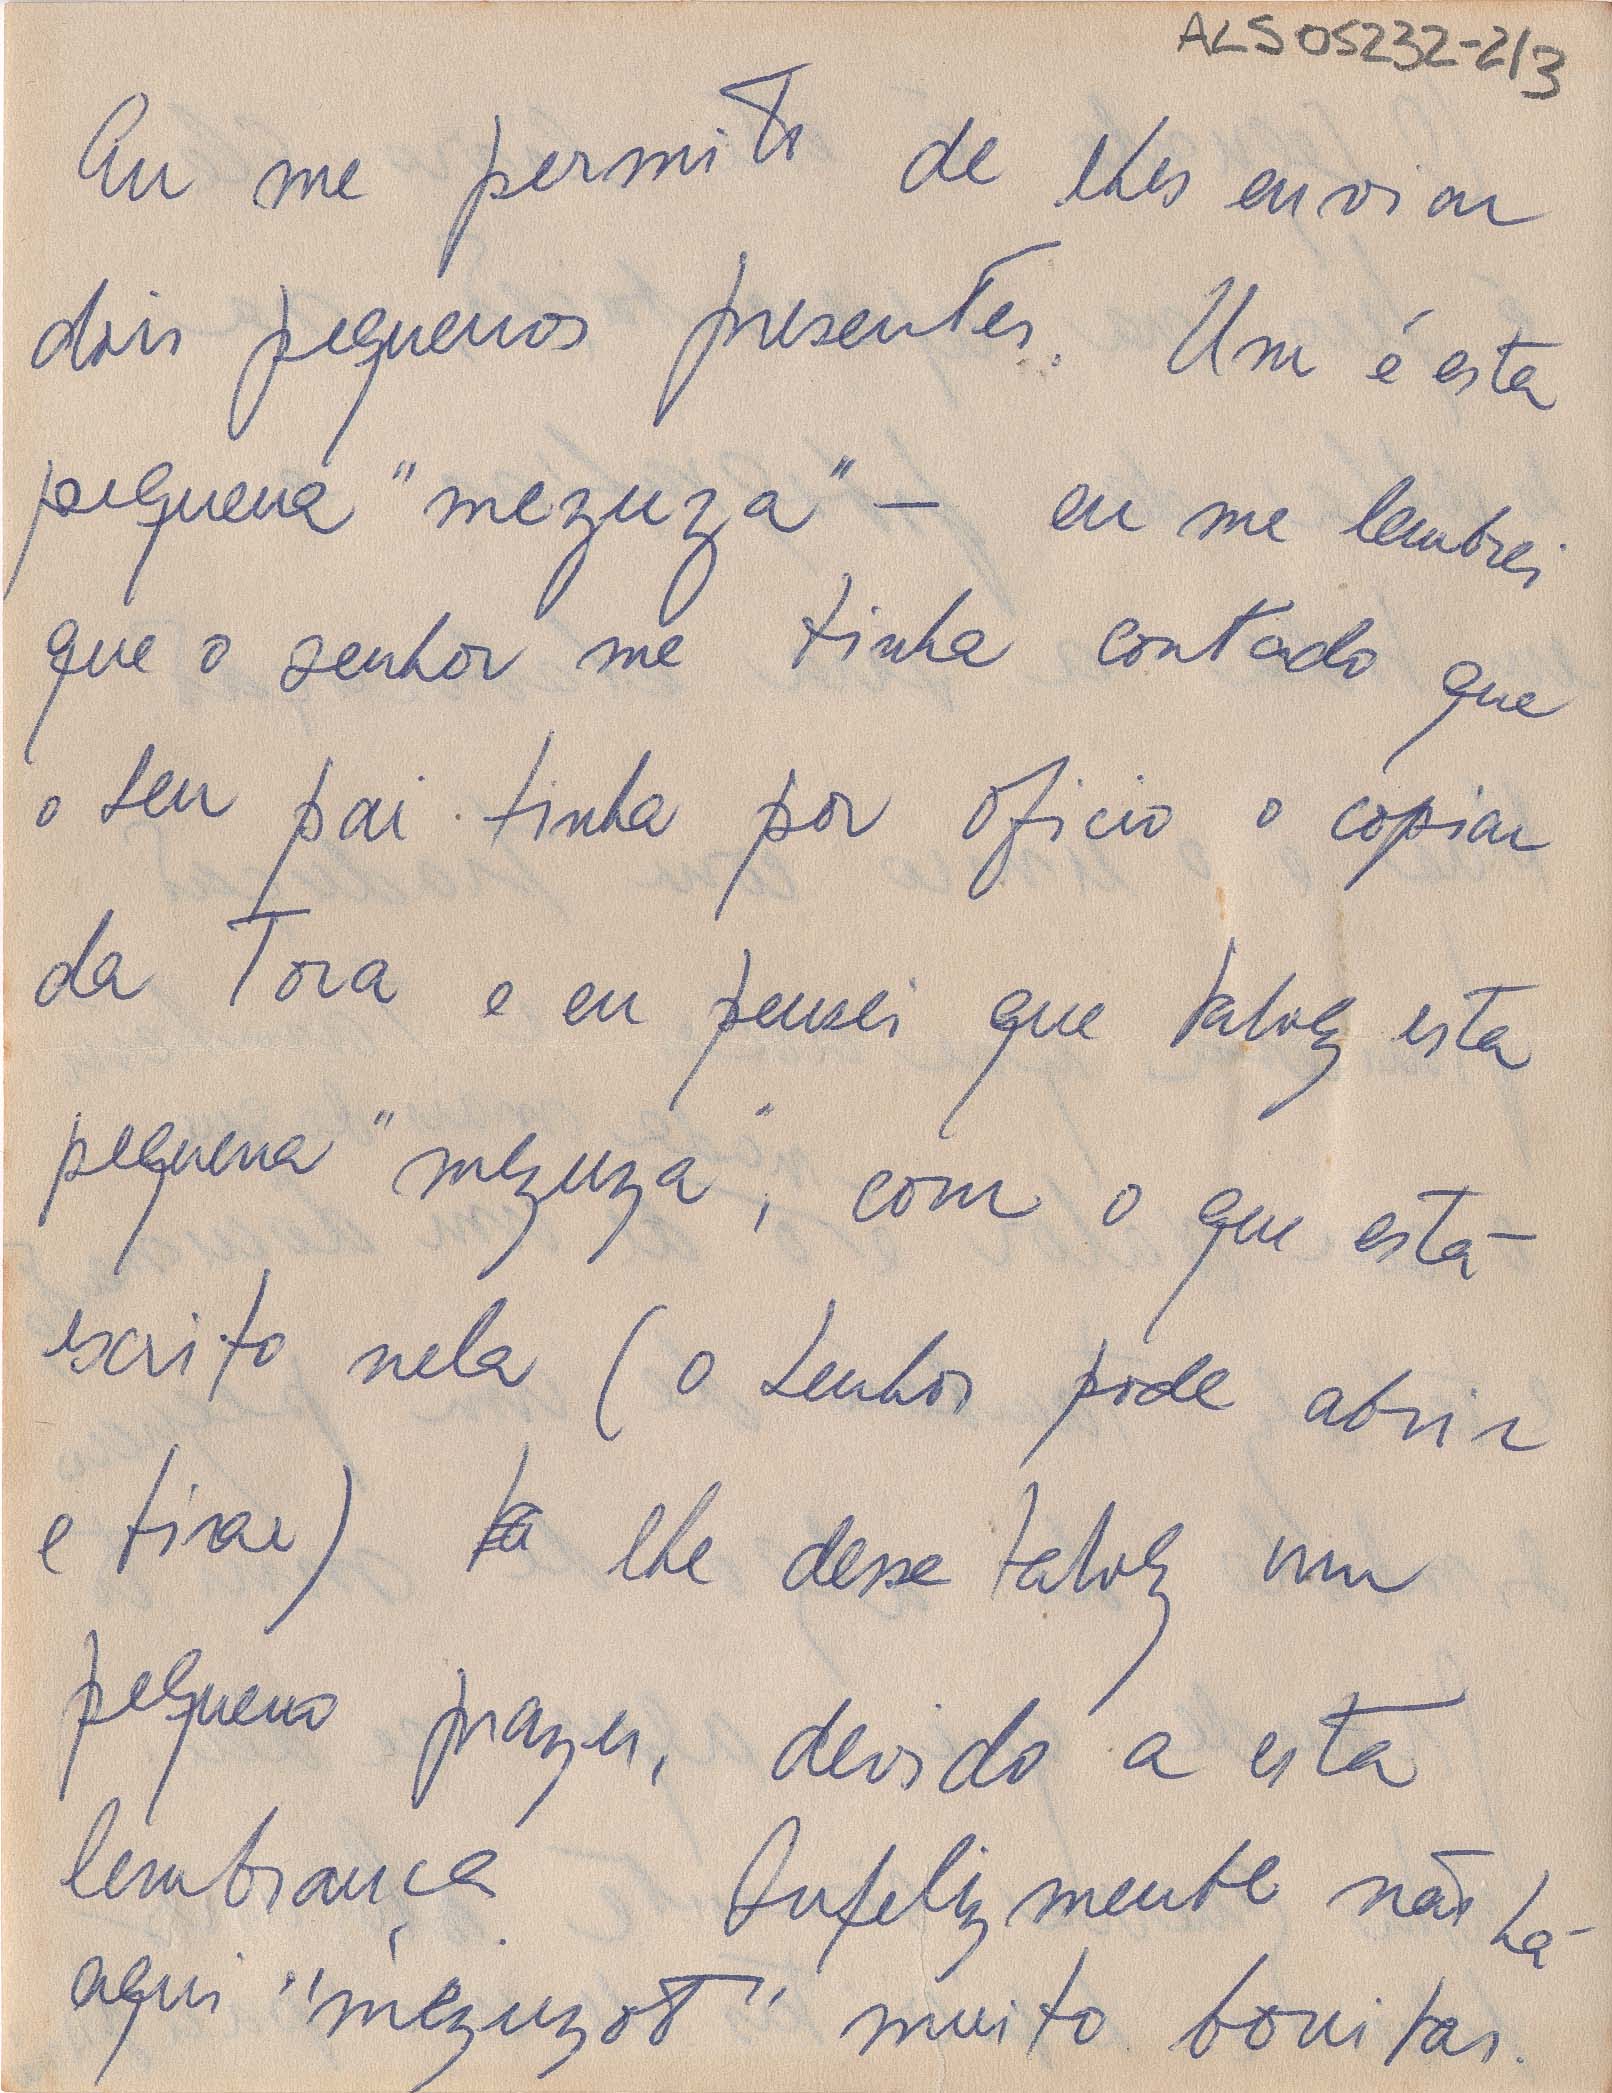 ALS05232-2/3
Eu me permito de lhes enviar
dois pequenos presentes. Um é esta
pequena "mezuza" – eu me lembrei
que o senhor me tinha contado que
o seu pai tinha por oficio o copiar
da Tora e eu pensei que talvez esta
pequena "mezuza", com o que está
escrito nela (o senhor pode abrir
e tirar) lhe desse talvez um
pequeno prazer, devido a esta
lembrança. Infelizmente não há
aqui "mezuzot" muito bonitas.